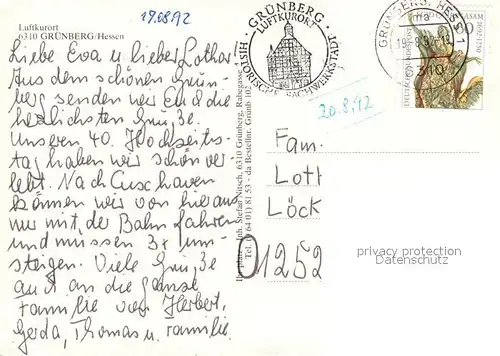 19.08.92
Luftkurort
6310 GRÜNBERG/Hessen
Liebe Eva u. lieber Lothar!
Aus dem schönen Grün-
berg senden wir Euch die
herzlichsten Grüße.
Unseren 40. Hochzeits-
tag haben wir schön ver-
lebt. Nach Cuxhaven
können wir von hier aus
nur mit der Bahn fahren
und müssen 3x um-
steigen. Viele Grüße
auch an die ganze
Familie von Herbert,
Gerda, Thomas u. Familie.
GRÜNBERG
LUFTKURORT
HISTORISCHE FACHWERKSTADT
GRÜNBERG, HESS
6310
ASAM
DEUTSCHE BUNDESPOST
20.8.92
Inh. Stefan Nitsch, 6310 Grünberg, Rabegasse
Tel. (0 64 01) 81 53 - da Bestellnr. Grünb 102
Fam.
Lott
Löck
01252
privacy protection
Datenschutz